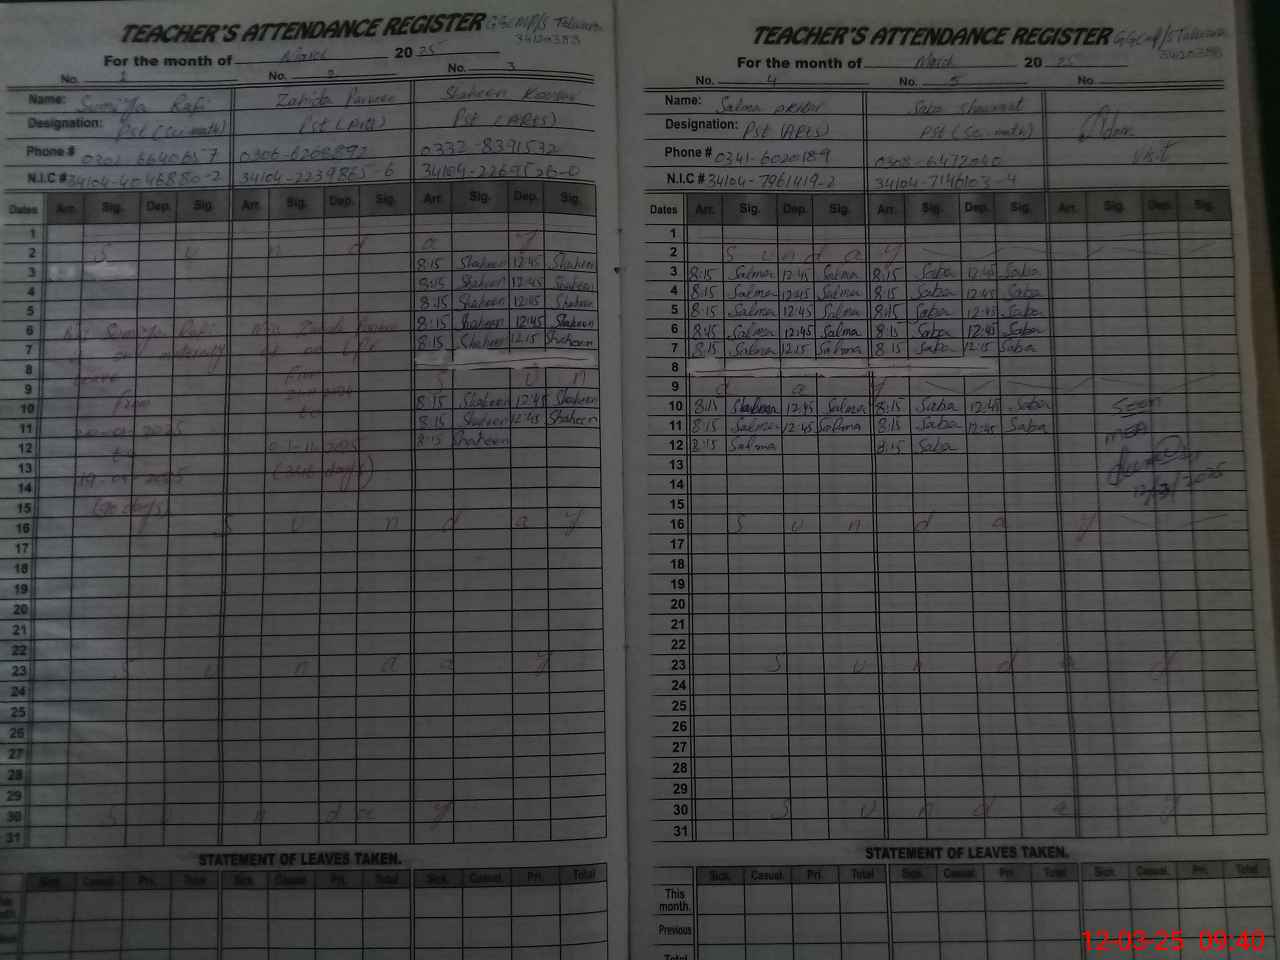 TEACHER'S ATTENDANCE REGISTER GGCMP/S Talwara
34120383
For the month of March 20 25
No. 1 No. 2 No. 3
Name: Sumiyya Rafi Zahida Parveen Shaheen Kousar
Designation: Pst (Sc.math) Pst (Arts) Pst (ARts)
Phone # 0306-6260892 0332-8391532
N.I.C # 34104-4046880-2 34104-2239865-6 34104-2269526-0
Dates Arr. Sig. Dep. Sig. Arr. Sig. Dep. Sig. Arr. Sig. Dep. Sig.
1
2 S u n d a y
3 8:15 Shaheen 12:45 Shaheen
4 8:15 Shaheen 12:45 Shaheen
5 8:15 Shaheen 12:45 Shaheen
6 Sumiyya Rafi Mrs Zahida Parveen 8:15 Shaheen 12:45 Shaheen
7 on maternity on 8:15 Shaheen 12:15 Shaheen
8 leave From
9 S u n
10 From to 8:15 Shaheen 12:45 Shaheen
11 8:15 Shaheen 12:45 Shaheen
12 to 8:15 Shaheen
13
14
15
16 S u n d a y
17
18
19
20
21
22
23 S u n d a y
24
25
26
27
28
29
30 S u n d a y
31
STATEMENT OF LEAVES TAKEN.
Sick. Casual. Pri. Total Sick. Casual. Pri. Total Sick. Casual. Pri. Total
TEACHER'S ATTENDANCE REGISTER GGCMP/S Talwara
34120383
For the month of March 20 25
No. 4 No. 5 No.
Name: Salma akbar Saba shawkat
Designation: Pst (ARts) Pst (Sc.math) Visit
Phone # 0341-6020189 0308-6472040
N.I.C # 34104-7961419-2 34104-7146103-4
Dates Arr. Sig. Dep. Sig. Arr. Sig. Dep. Sig. Arr. Sig. Dep. Sig.
1
2 S u n d a y
3 8:15 Salma 12:45 Salma 8:15 Saba 12:45 Saba
4 8:15 Salma 12:45 Salma 8:15 Saba 12:45 Saba
5 8:15 Salma 12:45 Salma 8:15 Saba 12:45 Saba
6 8:15 Salma 12:45 Salma 8:15 Saba 12:45 Saba
7 8:15 Salma 12:15 Salma 8:15 Saba 12:15 Saba
8
9 d a y
10 8:15 Shaheen 12:45 Salma 8:15 Saba 12:45 Saba Seen
11 8:15 Salma 12:45 Salma 8:15 Saba 12:45 Saba
12 8:15 Salma 8:15 Saba
13
14 12/3/2025
15
16 S u n d a y
17
18
19
20
21
22
23 S u n d a y
24
25
26
27
28
29
30 S u n d a y
31
STATEMENT OF LEAVES TAKEN.
Sick. Casual. Pri. Total Sick. Casual. Pri. Total Sick. Casual. Pri. Total
This month.
Previous
Total
12-03-25 09:40